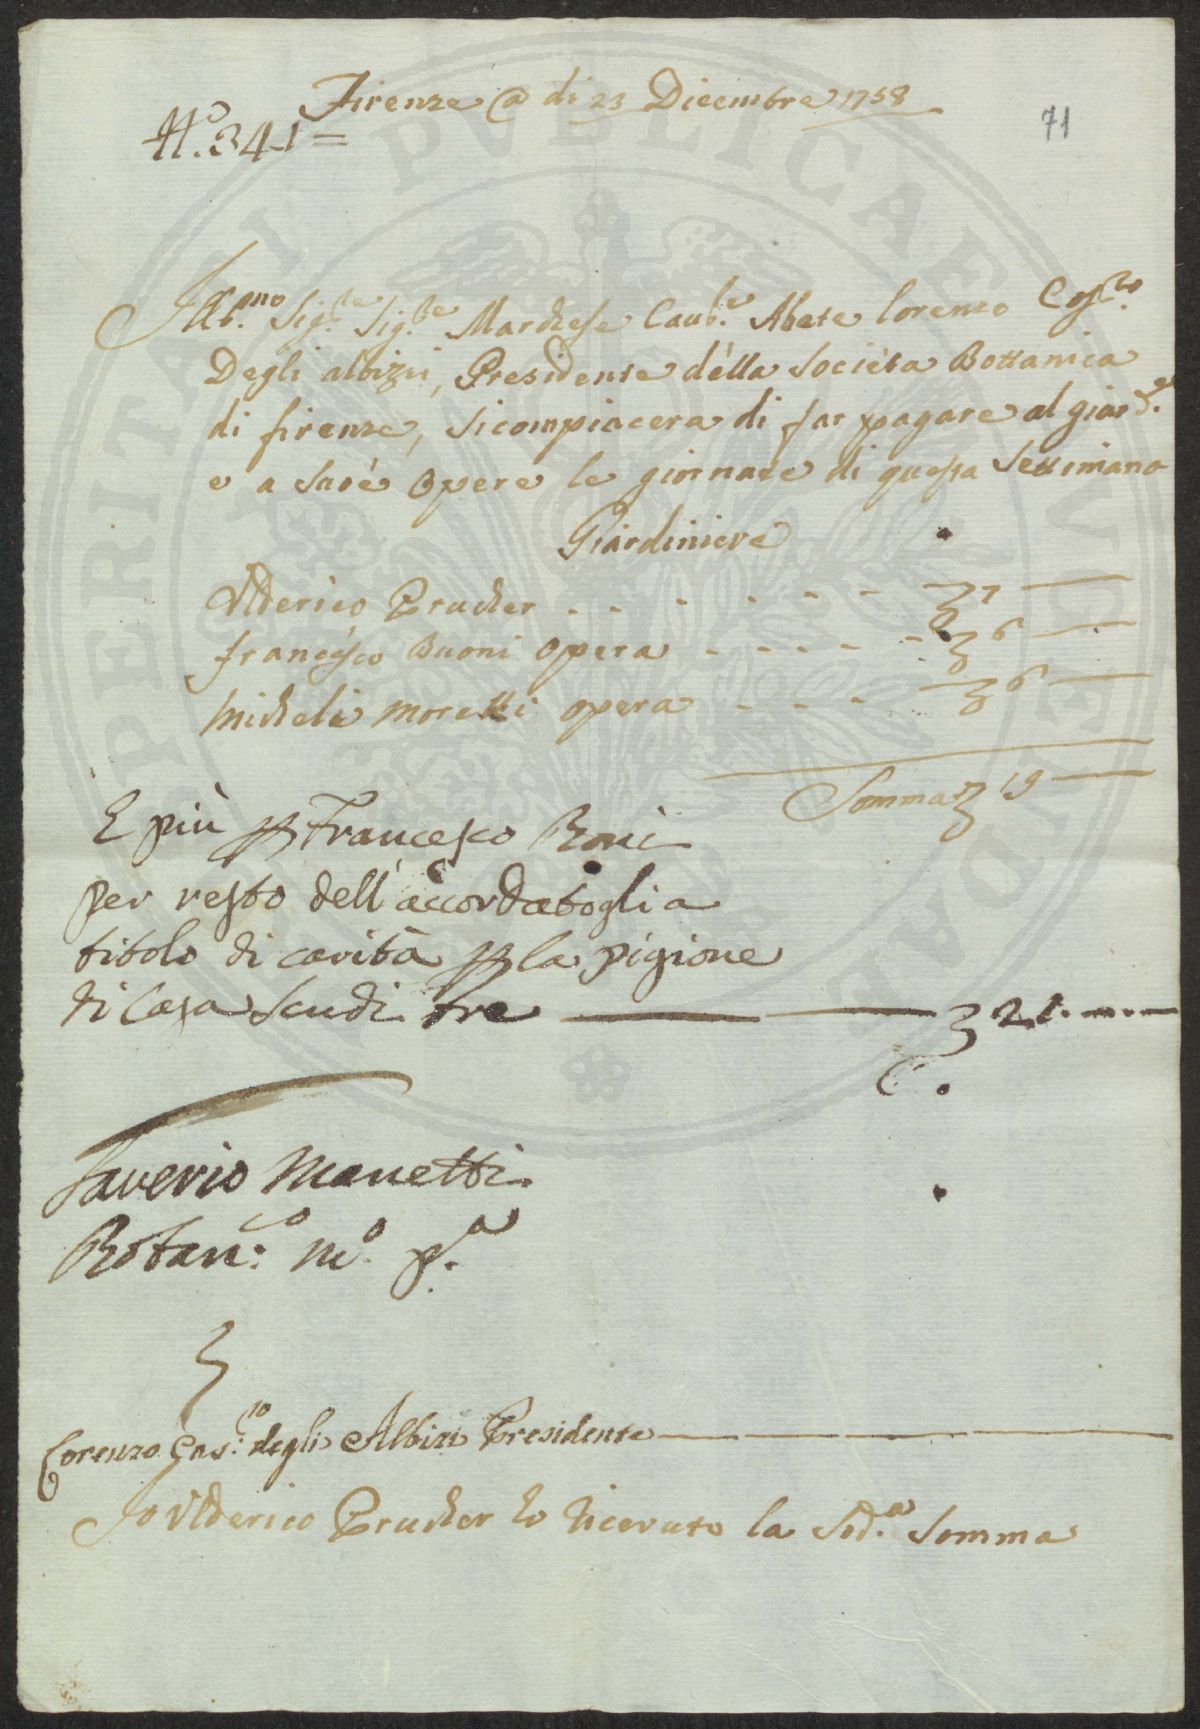 Firenze @ di 23 Dicembre 1758
N.º 341 =
71
Ill.mo Sig.re Sig.re Marchese Caub.e Abate lorenzo
Degli albizzi, Presidente della Società Bottanica
di firenze, si compiacera di far pagare al giard.e
e a suoé Opere le giornate di questa Settimana
Giardiniere
Ulderico Prucher - - - - - - - 7 —
francesco Buoni opera - - - - - 6 —
Micheli moretti opera - - - - 6 —
Somma 19 —
E più p Francesco Boni
per resto dell'accordatogli a
titolo di carità p la pigione
di Casa Scudi tre — — — 21. - - -
Saverio Manetti
Botan.co m.o p.a
Lorenzo Gas.ro degli Albizi Presidente
Io Ulderico Prucher ho riceuuto la Sod.a Somma
PERITATI PVBLICAE